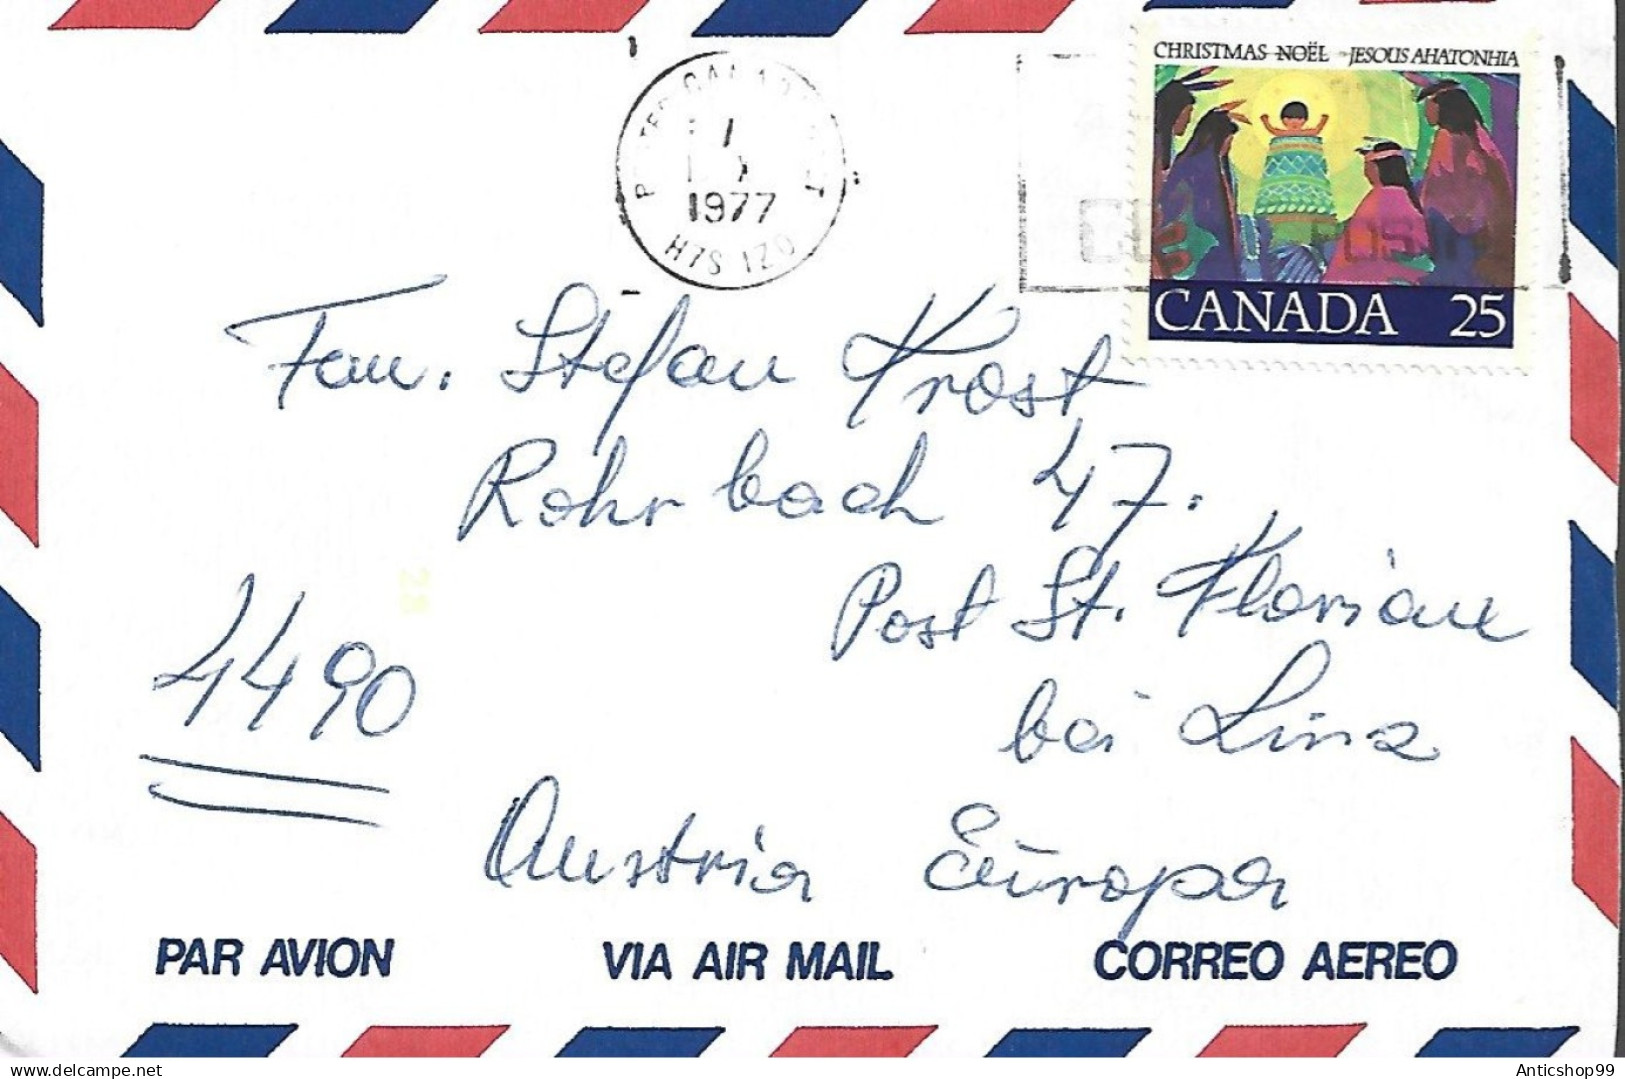 CHRISTMAS NOËL - JESOUS AHATONHIA
CANADA 25
1977
H7S 1Z0
Fam. Stefan Krost
Rohrbach 47.
Post St. Florian
bei Linz
4490
Austria Europa
PAR AVION VIA AIR MAIL CORREO AEREO
Anticshop99